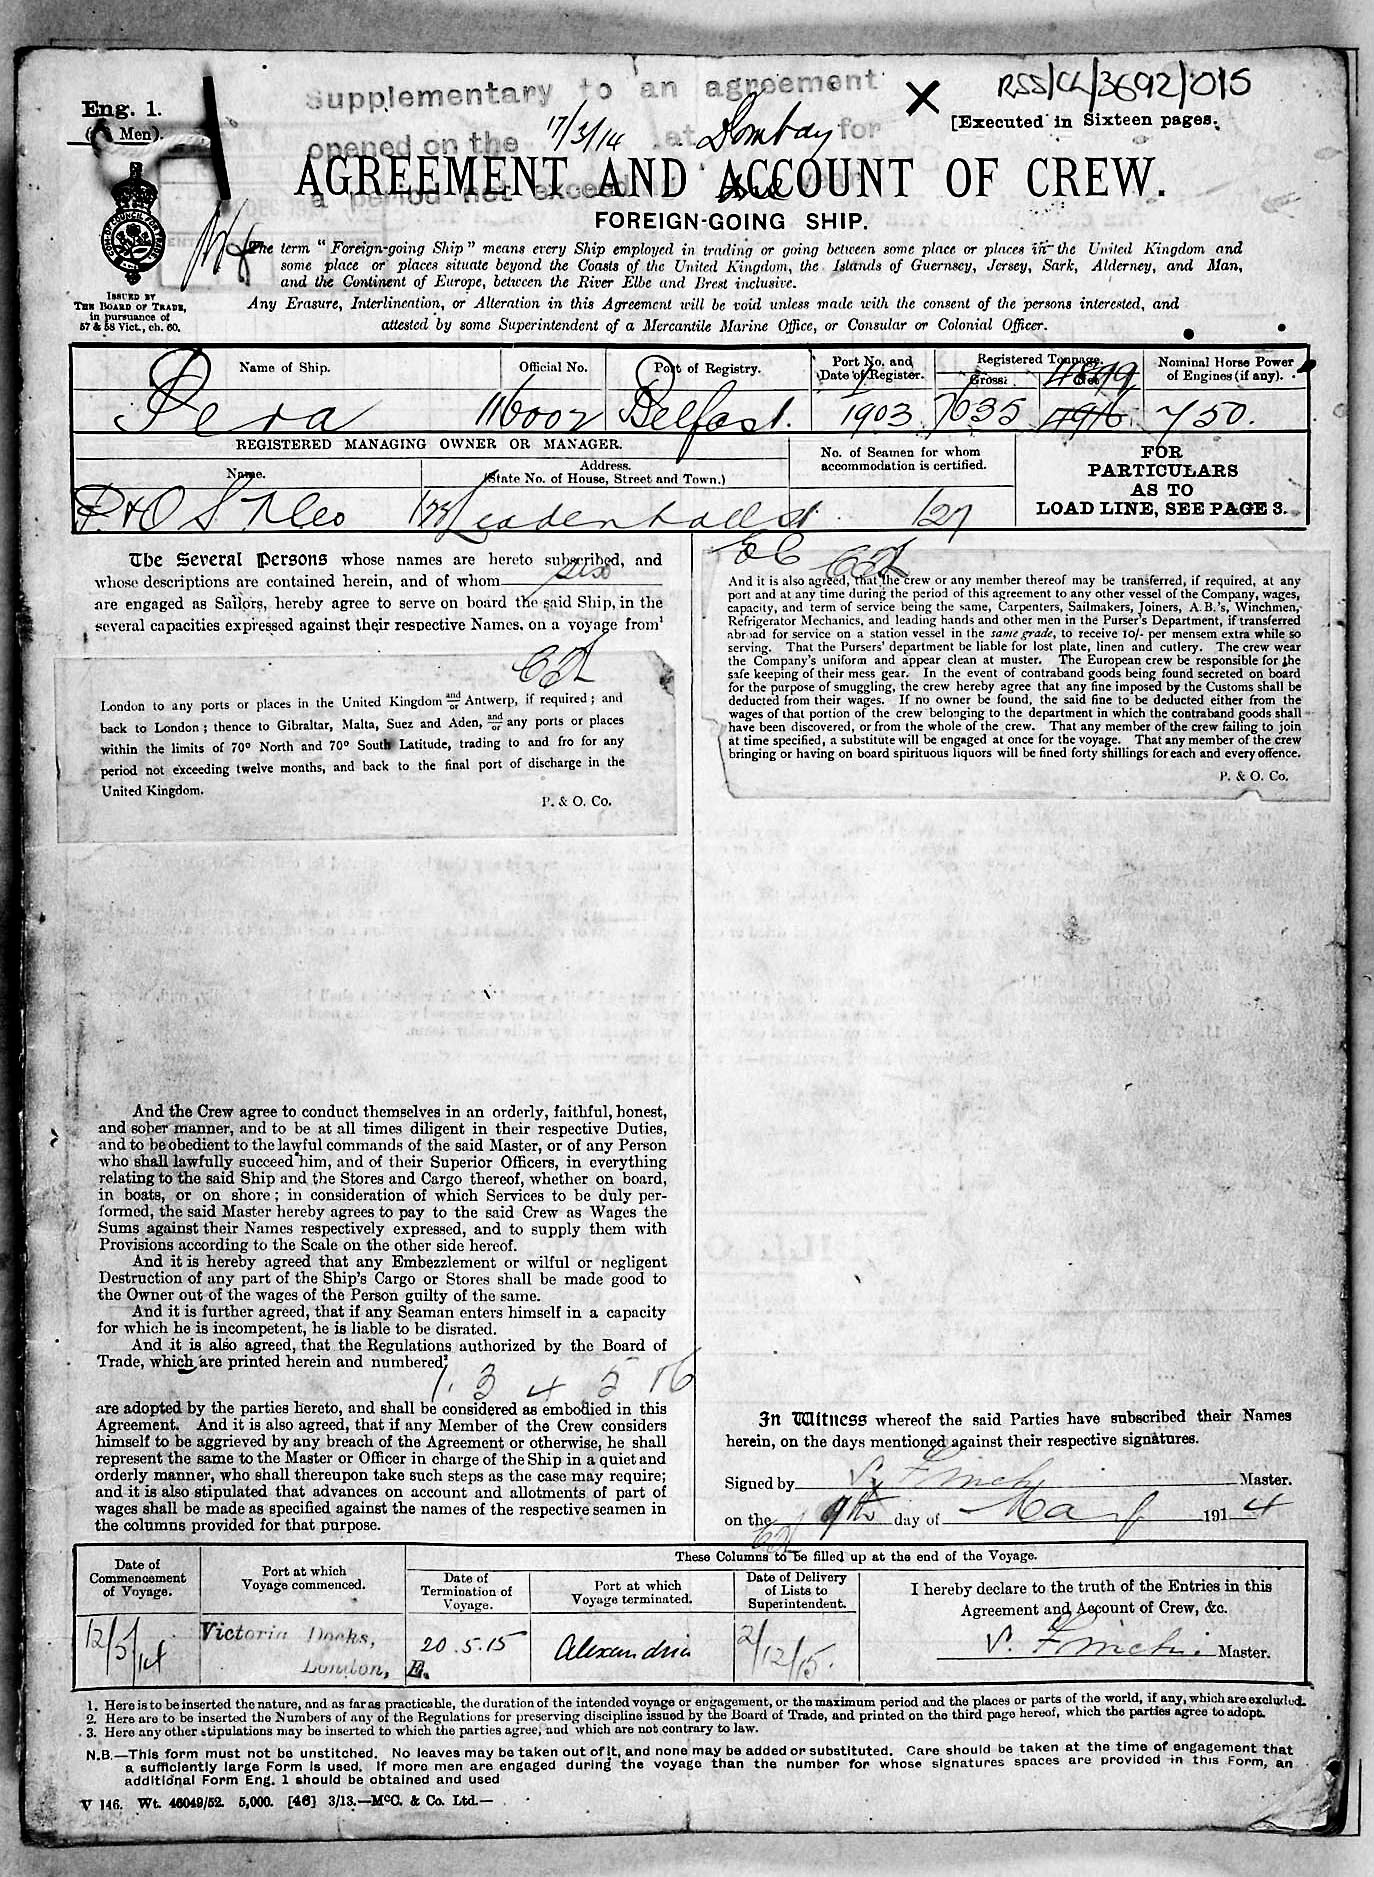 Supplementary to an agreement
RSS/CL/3692/015
Eng. 1.
( Men).
[Executed in Sixteen pages.
opened on the 17/3/14 at Bombay for
AGREEMENT AND ACCOUNT OF CREW.
a period not exceed one year
FOREIGN-GOING SHIP.
The term "Foreign-going Ship" means every Ship employed in trading or going between some place or places in the United Kingdom and
some place or places situate beyond the Coasts of the United Kingdom, the Islands of Guernsey, Jersey, Sark, Alderney, and Man,
and the Continent of Europe, between the River Elbe and Brest inclusive.
Any Erasure, Interlineation, or Alteration in this Agreement will be void unless made with the consent of the persons interested, and
attested by some Superintendent of a Mercantile Marine Office, or Consular or Colonial Officer.
ISSUED BY
THE BOARD OF TRADE,
in pursuance of
57 & 58 Vict., ch. 60.
Name of Ship.
Official No.
Port of Registry.
Port No. and
Date of Register.
Registered Tonnage.
Gross.
Net
4899
Nominal Horse Power
of Engines (if any).
Pera
116002
Belfast.
1/1903
7635
4916
750.
REGISTERED MANAGING OWNER OR MANAGER.
Name.
Address.
(State No. of House, Street and Town.)
No. of Seamen for whom
accommodation is certified.
FOR
PARTICULARS
AS TO
LOAD LINE, SEE PAGE 3.
P. & O S N Co
122 Leadenhall St
EC
127
The Several Persons whose names are hereto subscribed, and
whose descriptions are contained herein, and of whom six
are engaged as Sailors, hereby agree to serve on board the said Ship, in the
several capacities expressed against their respective Names, on a voyage from¹
London to any ports or places in the United Kingdom and/or Antwerp, if required; and
back to London; thence to Gibraltar, Malta, Suez and Aden, and/or any ports or places
within the limits of 70° North and 70° South Latitude, trading to and fro for any
period not exceeding twelve months, and back to the final port of discharge in the
United Kingdom.
P. & O. Co.
And the Crew agree to conduct themselves in an orderly, faithful, honest,
and sober manner, and to be at all times diligent in their respective Duties,
and to be obedient to the lawful commands of the said Master, or of any Person
who shall lawfully succeed him, and of their Superior Officers, in everything
relating to the said Ship and the Stores and Cargo thereof, whether on board,
in boats, or on shore; in consideration of which Services to be duly per-
formed, the said Master hereby agrees to pay to the said Crew as Wages the
Sums against their Names respectively expressed, and to supply them with
Provisions according to the Scale on the other side hereof.
And it is hereby agreed that any Embezzlement or wilful or negligent
Destruction of any part of the Ship's Cargo or Stores shall be made good to
the Owner out of the wages of the Person guilty of the same.
And it is further agreed, that if any Seaman enters himself in a capacity
for which he is incompetent, he is liable to be disrated.
And it is also agreed, that the Regulations authorized by the Board of
Trade, which are printed herein and numbered²
1. 3 4 5 & 6
are adopted by the parties hereto, and shall be considered as embodied in this
Agreement. And it is also agreed, that if any Member of the Crew considers
himself to be aggrieved by any breach of the Agreement or otherwise, he shall
represent the same to the Master or Officer in charge of the Ship in a quiet and
orderly manner, who shall thereupon take such steps as the case may require;
and it is also stipulated that advances on account and allotments of part of
wages shall be made as specified against the names of the respective seamen in
the columns provided for that purpose.
And it is also agreed, that the crew or any member thereof may be transferred, if required, at any
port and at any time during the period of this agreement to any other vessel of the Company, wages,
capacity, and term of service being the same, Carpenters, Sailmakers, Joiners, A.B.'s, Winchmen,
Refrigerator Mechanics, and leading hands and other men in the Purser's Department, if transferred
abroad for service on a station vessel in the same grade, to receive 10/- per mensem extra while so
serving. That the Pursers' department be liable for lost plate, linen and cutlery. The crew wear
the Company's uniform and appear clean at muster. The European crew be responsible for the
safe keeping of their mess gear. In the event of contraband goods being found secreted on board
for the purpose of smuggling, the crew hereby agree that any fine imposed by the Customs shall be
deducted from their wages. If no owner be found, the said fine to be deducted either from the
wages of that portion of the crew belonging to the department in which the contraband goods shall
have been discovered, or from the whole of the crew. That any member of the crew failing to join
at time specified, a substitute will be engaged at once for the voyage. That any member of the crew
bringing or having on board spirituous liquors will be fined forty shillings for each and every offence.
P. & O. Co.
In Witness whereof the said Parties have subscribed their Names
herein, on the days mentioned against their respective signatures.
Signed by V. Finch Master.
on the 9th day of May 1914
Date of
Commencement
of Voyage.
Port at which
Voyage commenced.
These Columns to be filled up at the end of the Voyage.
Date of
Termination of
Voyage.
Port at which
Voyage terminated.
Date of Delivery
of Lists to
Superintendent.
I hereby declare to the truth of the Entries in this
Agreement and Account of Crew, &c.
12/5/14
Victoria Docks,
London, E.
20.5.15
Alexandria
2/12/15.
V. Finch. Master.
1. Here is to be inserted the nature, and as far as practicable, the duration of the intended voyage or engagement, or the maximum period and the places or parts of the world, if any, which are excluded.
2. Here are to be inserted the Numbers of any of the Regulations for preserving discipline issued by the Board of Trade, and printed on the third page hereof, which the parties agree to adopt.
3. Here any other stipulations may be inserted to which the parties agree, and which are not contrary to law.
N.B.—This form must not be unstitched. No leaves may be taken out of it, and none may be added or substituted. Care should be taken at the time of engagement that
a sufficiently large Form is used. If more men are engaged during the voyage than the number for whose signatures spaces are provided in this Form, an
additional Form Eng. 1 should be obtained and used
V 146. Wt. 46049/52. 5,000. [46] 3/13.—McC. & Co. Ltd.—